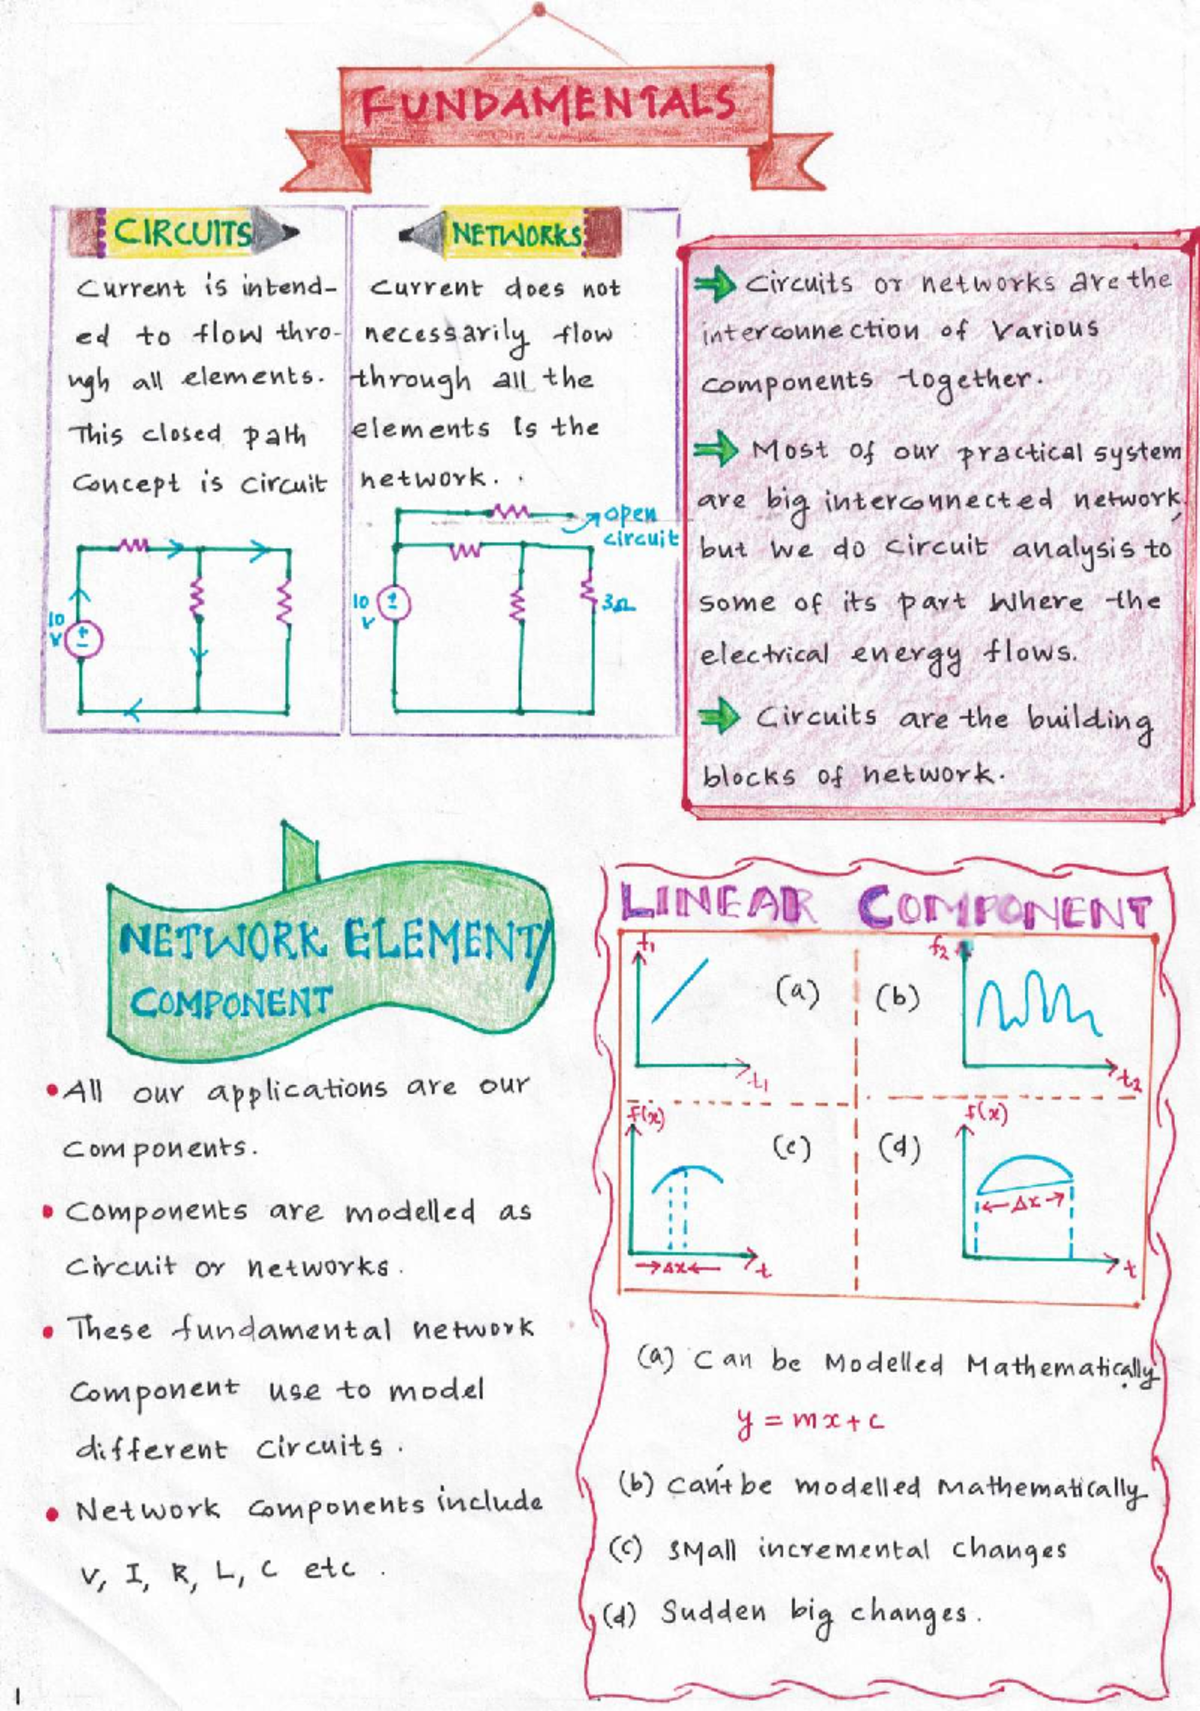 FUNDAMENTALS
CIRCUITS
Current is intend-
ed to flow thro-
ugh all elements.
This closed path
Concept is circuit
10
V
+
-
NETWORKS
Current does not
necessarily flow
through all the
elements is the
network.
open
circuit
10
V
+
-
3Ω
Circuits or networks are the
interconnection of various
components together.
Most of our practical system
are big interconnected network,
but we do circuit analysis to
some of its part where the
electrical energy flows.
Circuits are the building
blocks of network.
NETWORK ELEMENT/
COMPONENT
• All our applications are our
components.
• Components are modelled as
circuit or networks.
• These fundamental network
component use to model
different circuits.
• Network components include
V, I, R, L, C etc.
LINEAR COMPONENT
f1
(a)
t1
f2
(b)
t2
f(x)
(c)
Δx
t
f(x)
(d)
Δx
t
(a) Can be Modelled Mathematically
y = mx+c
(b) Can't be modelled Mathematically
(c) Small incremental changes
(d) Sudden big changes.
1